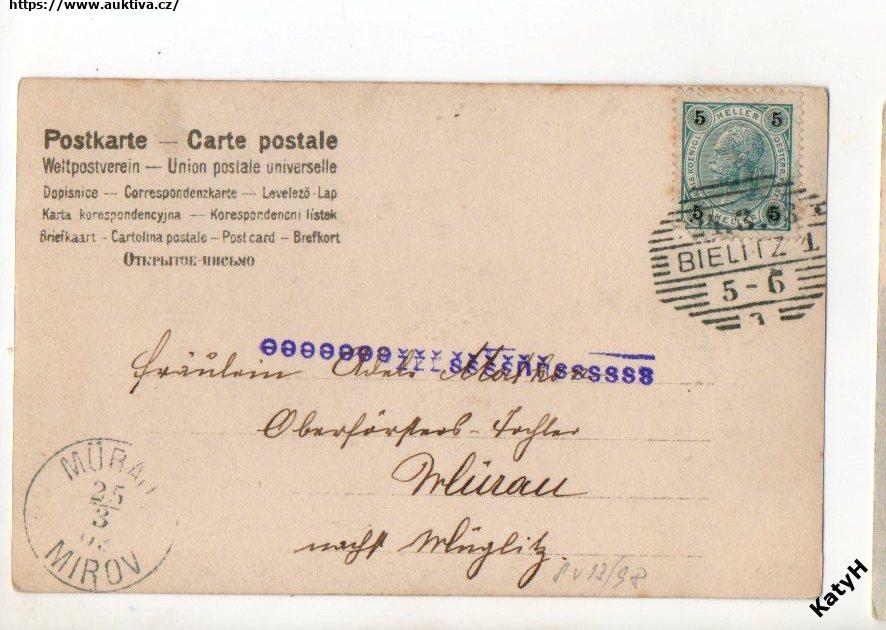 https://www.auktiva.cz/
Postkarte — Carte postale
Weltpostverein — Union postale universelle
Dopisnice — Correspondenzkarte — Levelező-Lap
Karta korespondencyjna — Korespondencni listek
Briefkaart - Cartolina postale — Post card — Brefkort
Открытое-письмо
5 HELLER 5
5 HELLER 5
BIELITZ 1
5-6
Fräulein Adele
Oberförsters-Tochter
Mürau
nächst Müglitz
MÜRAU
25
3
MIROV
KatyH